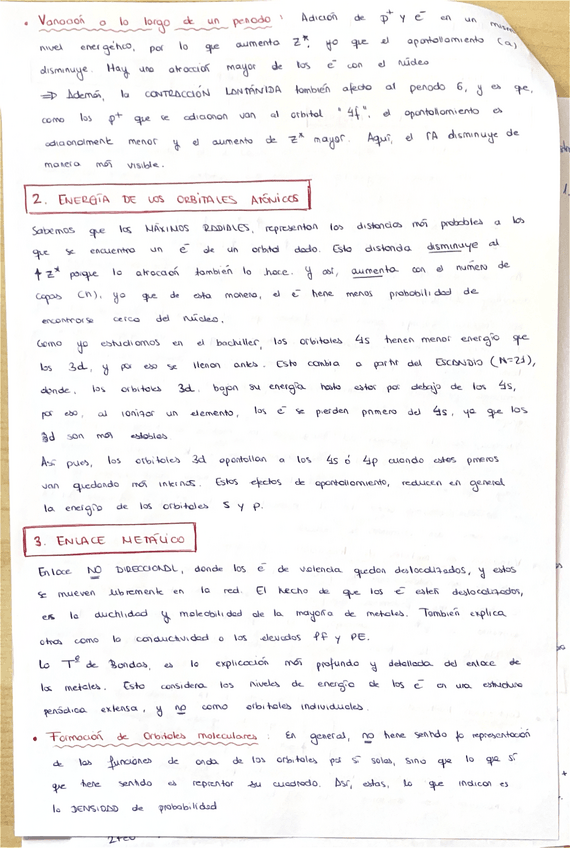 • Variación a lo largo de un periodo : Adición de p⁺ y e⁻ en un mismo
nivel energético, por lo que aumenta Z*, ya que el apantallamiento (a)
disminuye. Hay una atracción mayor de los e⁻ con el núcleo
⇒ Además, la CONTRACCIÓN LANTÁNIDA también afecta al periodo 6, y es que,
como los p⁺ que se adicionan van al orbital "4f", el apantallamiento es
adicionalmente menor y el aumento de Z* mayor. Aquí, el rA disminuye de
manera más visible.
2. ENERGÍA DE LOS ORBITALES ATÓMICOS
Sabemos que los MÁXIMOS RADIALES, representan las distancias más probables a las
que se encuentra un e⁻ de un orbital dado. Esta distancia disminuye al
↑ Z* porque la atracción también lo hace. Y así, aumenta con el número de
capas (n), ya que de esta manera, el e⁻ tiene menos probabilidad de
encontrarse cerca del núcleo.
Como ya estudiamos en el bachiller, los orbitales 4s tienen menor energía que
los 3d, y por eso se llenan antes. Esto cambia a partir del ESCANDIO (N=21),
donde, los orbitales 3d bajan su energía hasta estar por debajo de los 4s,
por eso, al ionizar un elemento, los e⁻ se pierden primero del 4s, ya que los
3d son más estables.
Así pues, los orbitales 3d apantallan a los 4s ó 4p cuando estos primeros
van quedando más internos. Estos efectos de apantallamiento, reducen en general
la energía de los orbitales s y p.
3. ENLACE METÁLICO
Enlace NO DIRECCIONAL, donde los e⁻ de valencia quedan deslocalizados, y estos
se mueven libremente en la red. El hecho de que los e⁻ estén deslocalizados,
es la ductilidad y maleabilidad de la mayoría de metales. También explica
otras como la conductividad o los elevados PF y PE.
La Tª de Bandas, es la explicación más profunda y detallada del enlace de
los metales. Esta considera los niveles de energía de los e⁻ en una estructura
periódica extensa, y no como orbitales individuales.
• Formación de Orbitales moleculares : En general, no tiene sentido la representación
de las funciones de onda de los orbitales por sí solas, sino que lo que sí
que tiene sentido es reprentar su cuadrado. Así, estas, lo que indican es
la DENSIDAD de probabilidad